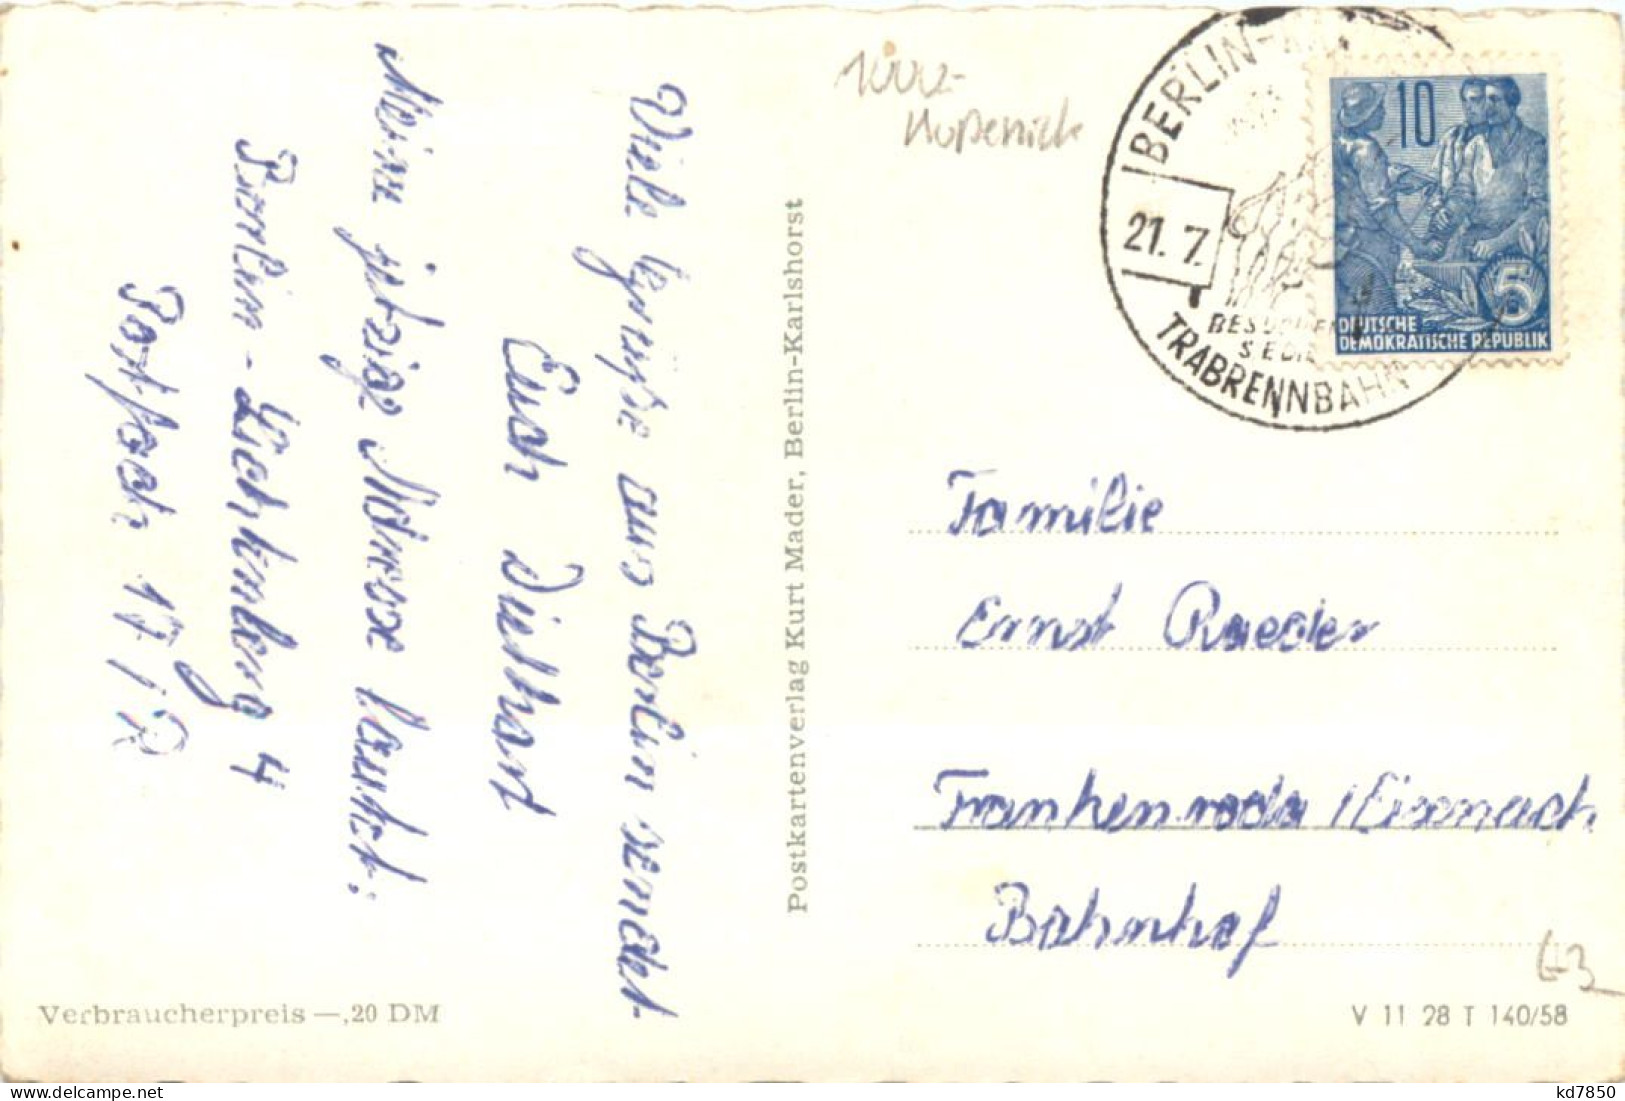 Viele Grüße aus Berlin sendet
Euch Diethart
Meine jetzige Adresse lautet:
Berlin-Lichtenberg 4
Postfach 17/R
Verbraucherpreis —,20 DM
Postkartenverlag Kurt Mader, Berlin-Karlshorst
BERLIN-
21. 7.
BESUCHEN
SIE DIE
TRABRENNBAHN
10
5
DEUTSCHE
DEMOKRATISCHE REPUBLIK
Familie
Ernst Raeder
Frankenroda /Eisenach
Bahnhof
V 11 28 T 140/58
kd7850